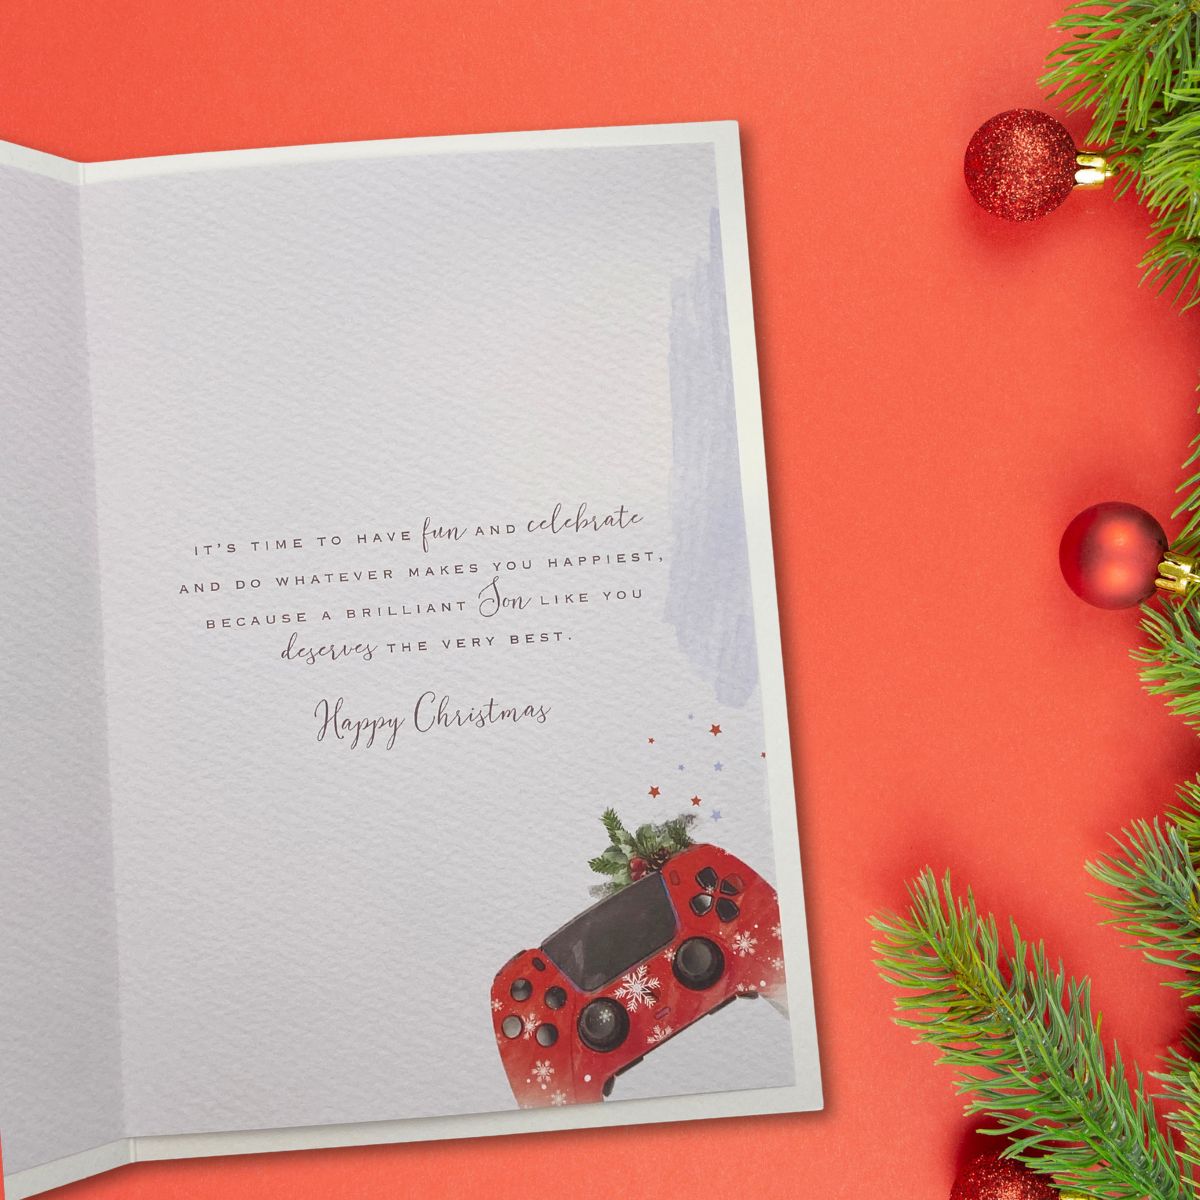 IT'S TIME TO HAVE fun AND celebrate
AND DO WHATEVER MAKES YOU HAPPIEST,
BECAUSE A BRILLIANT Son LIKE YOU
deserves THE VERY BEST.
Happy Christmas